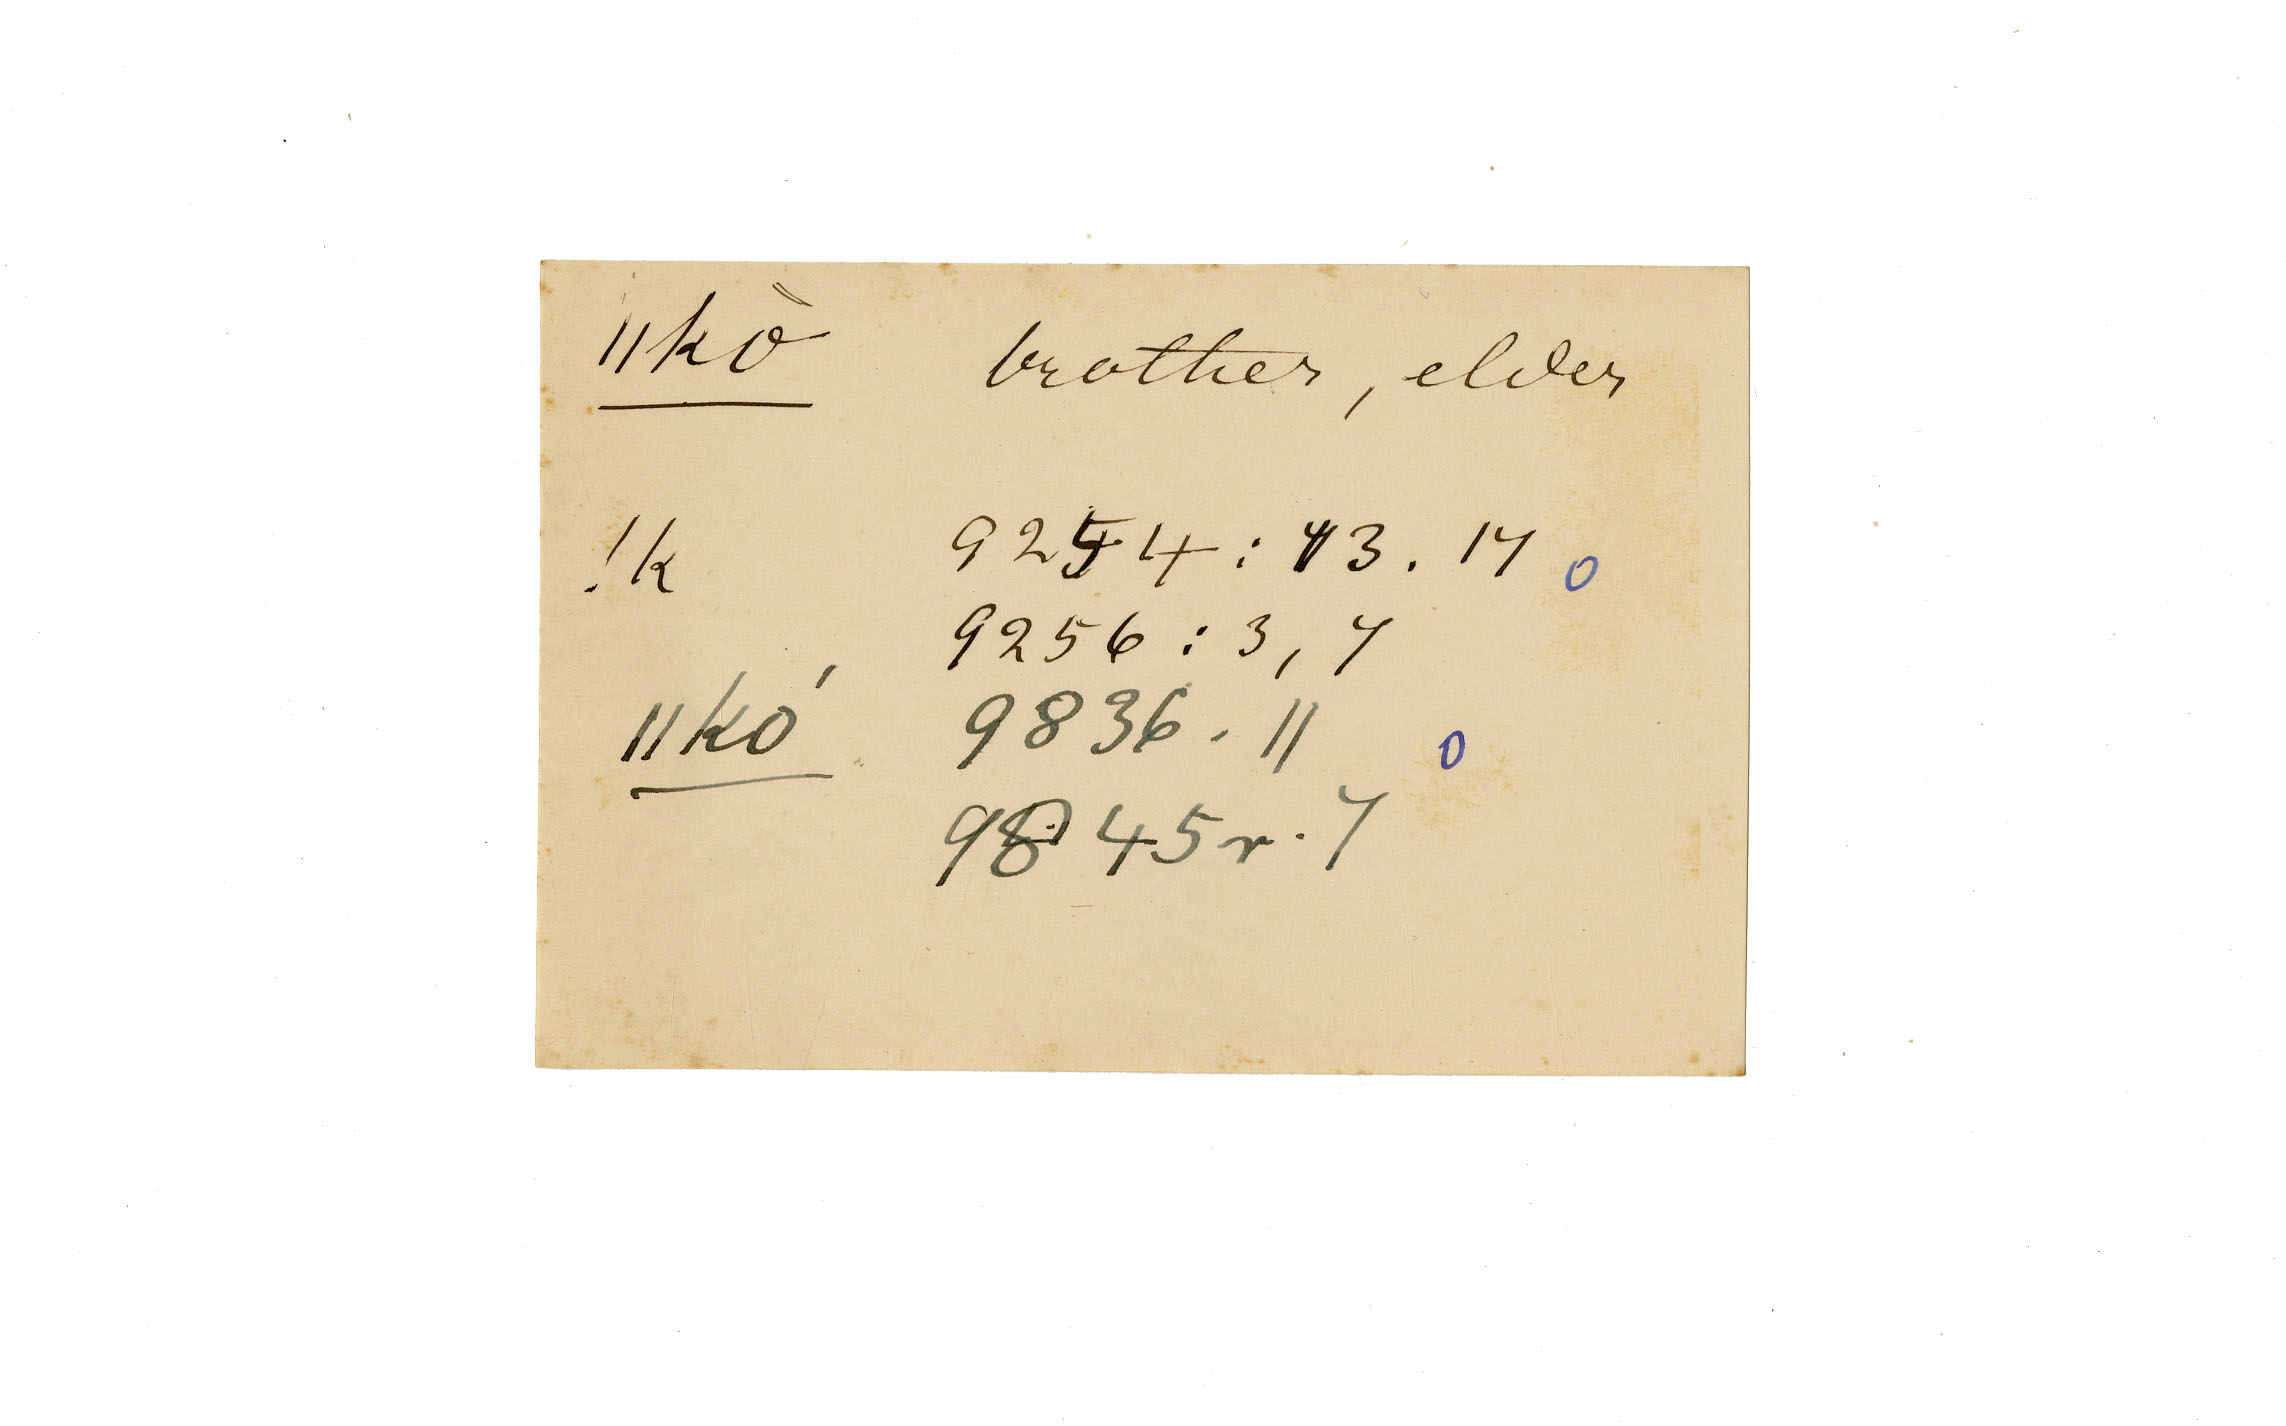 ǁkȍ brother, elder
!k 9254 : 13. 17 0
9256 : 3, 7
ǁkó 9836. 11 0
9845r. 7